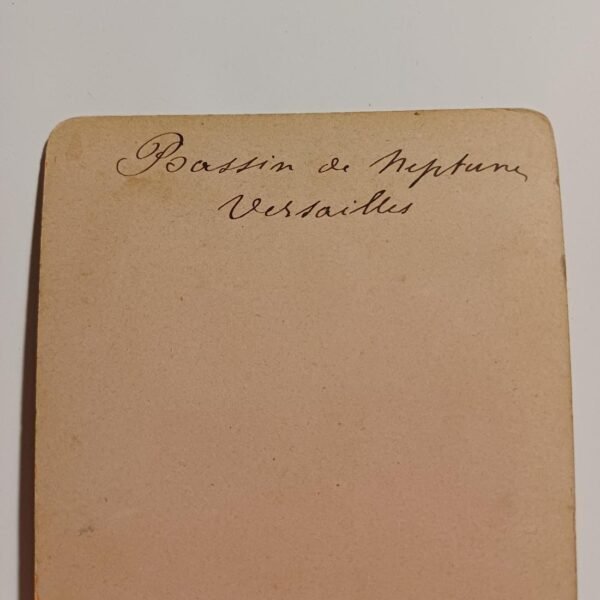 Bassin de Neptune
Versailles